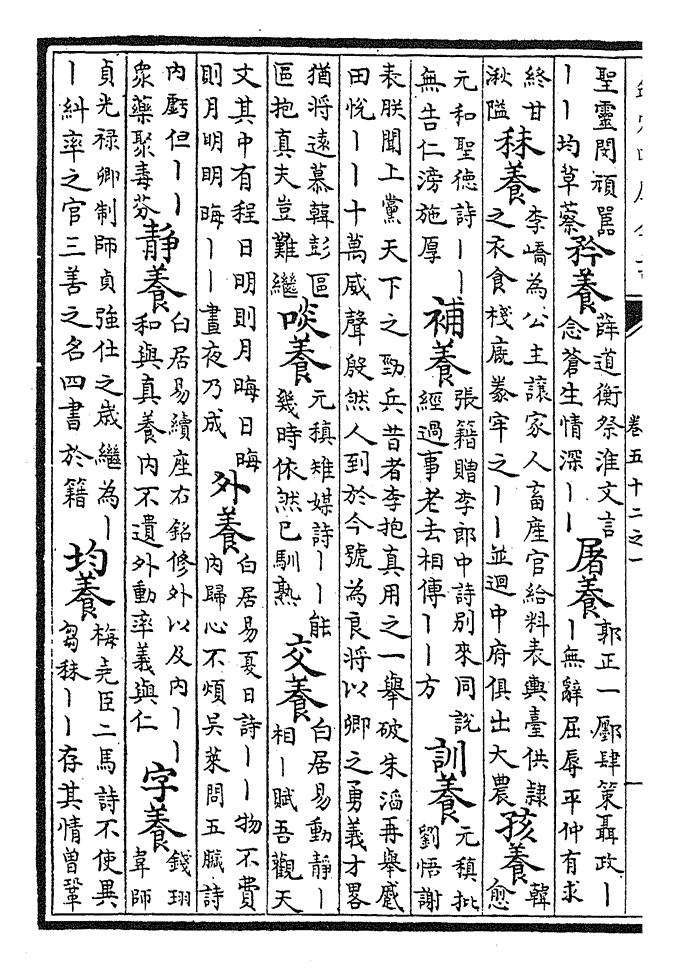 卷五十二之一
一
聖靈閔頑嚚
｜｜均草蔡
矜養
薛道衡祭淮文言
念蒼生情深｜｜
屠養
郭正一郿肆策聶政｜
｜無辭屈辱平仲有求
終甘
湫隘
秣養
李嶠為公主讓家人畜產官給料表輿臺供隸
之衣食棧廐豢牢之｜｜並迴中府俱出大農
孩養
韓
愈
元和聖德詩｜｜
無告仁滂施厚
補養
張籍贈李郎中詩別來同說
經過事老去相傳｜｜方
訓養
元稹批
劉悟謝
表朕聞上黨天下之勁兵昔者李抱真用之一舉破朱滔再舉蹙
田悅｜｜十萬威聲殷然人到於今號為良將以卿之勇義才畧
猶將遠慕韓彭區
區抱真夫豈難繼
啖養
元稹雉媒詩｜｜能
幾時依然已馴熟
交養
白居易動靜｜
相｜賦吾觀天
文其中有程日明則月晦日晦
則月明明晦｜｜晝夜乃成
外養
白居易夏日詩｜｜物不費
內歸心不煩吳萊問五臟詩
內虧但｜｜
衆藥聚毒芬
靜養
白居易續座右銘修外以及內｜｜
和與真養內不遺外動率義與仁
字養
錢珝
韋師
貞光祿卿制師貞強仕之歲繼為｜
｜糾率之官三善之名四書於籍
均養
梅堯臣二馬詩不使異
芻秣｜｜存其情曾鞏